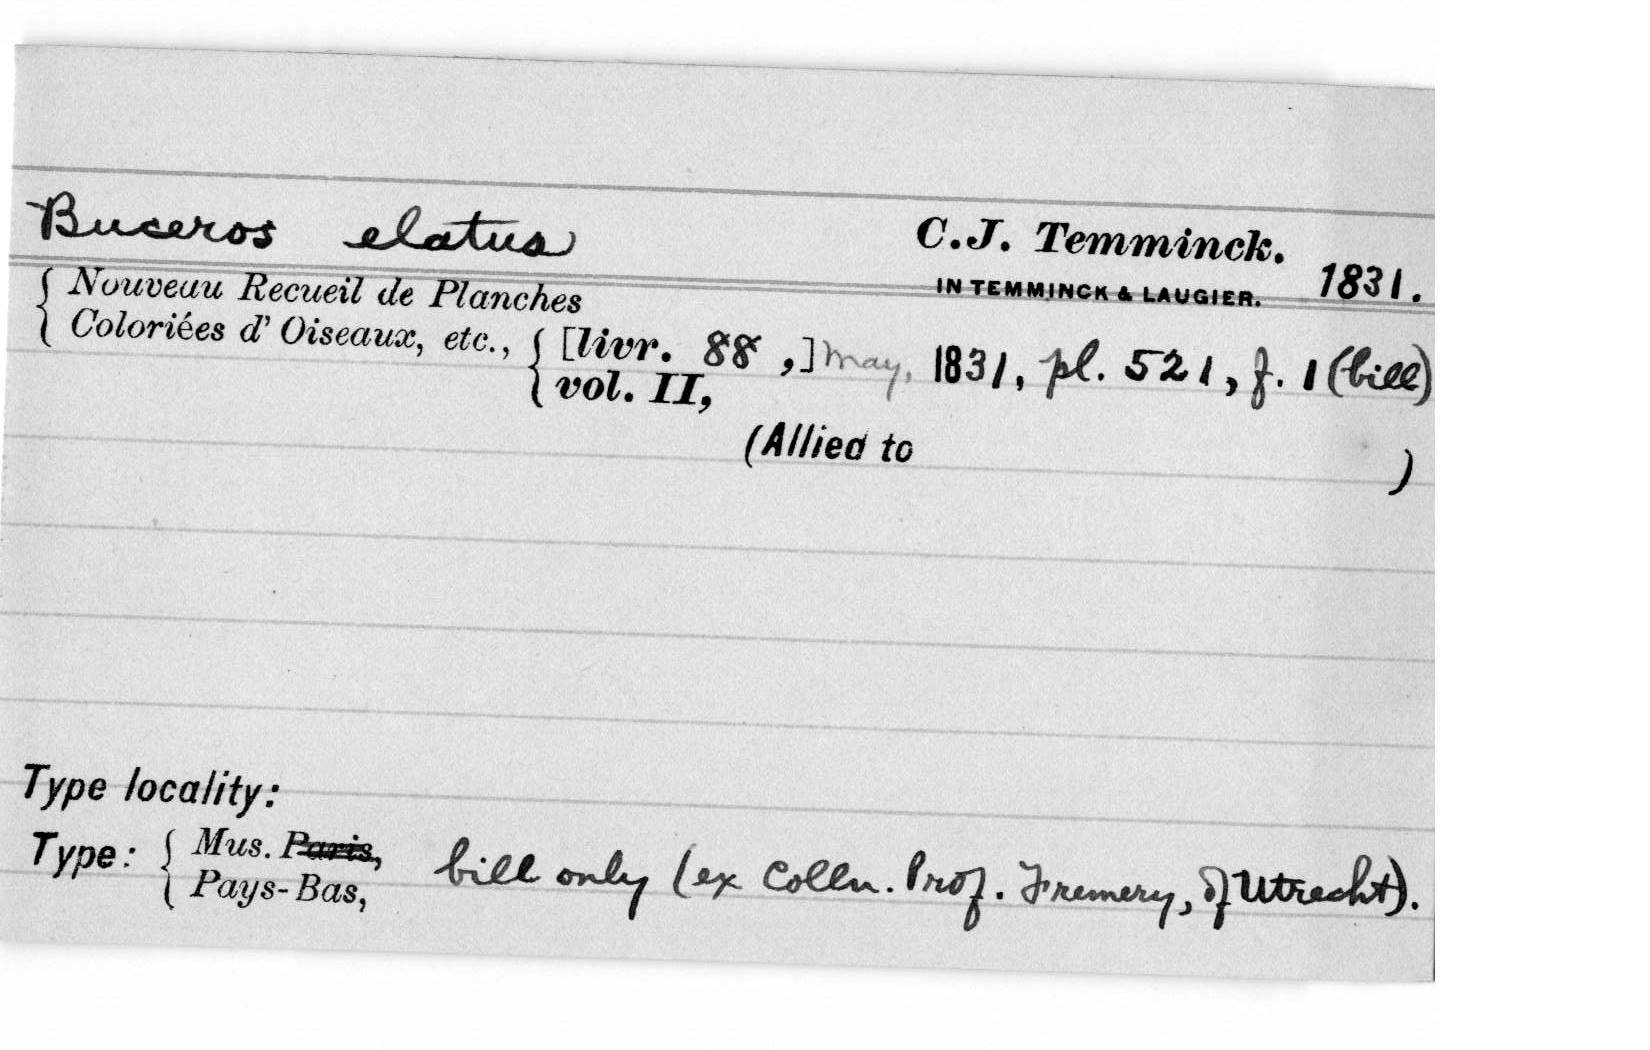 Buceros elatus C.J. Temminck.
IN TEMMINCK & LAUGIER. 1831.
{ Nouveau Recueil de Planches
Coloriées d' Oiseaux, etc., { [livr. 88 ,] May, 1831, pl. 521, f. 1 (bill)
vol. II,
(Allied to )
Type locality:
Type: { Mus. Paris, bill only (ex Colln. Prof. Fremery, of Utrecht).
Pays-Bas,